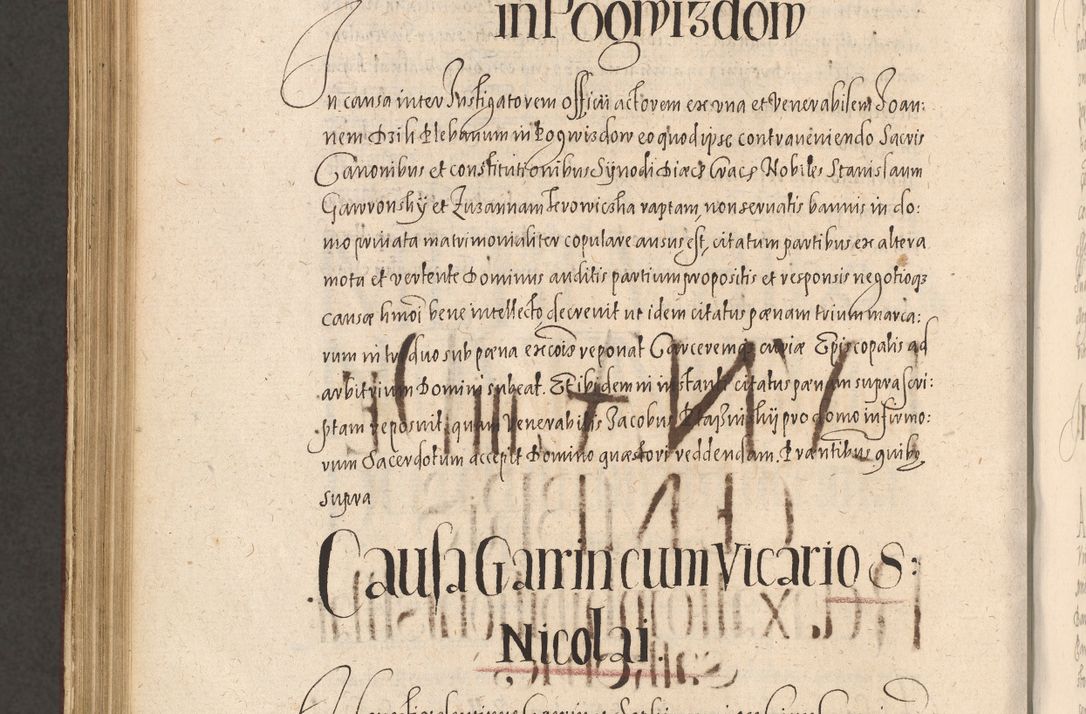 in Pogwizdow
In causa inter Instigatorem officii actorem ex vna et venerabilem Joan:
nem Plebanum in Pogwizdow eo quod ipse contraueniendo Sacris
Canonibus et constitutionibus Synodi Diaec Crac Nobiles Stanislaum
Gawronskÿ et Zuzannam raptam, non seruatis bannis in do:
mo priuata matrimonialiter copulare ausus est, citatum partibus ex altera
mota et vertente Dominus auditis partium propositis et responsis negotioq
causae hmoi bene intellecto decrevit ut idem citatus paenam trium marca:
rum in triduo sub paena excois reponat Carceremq curiae Episcopalis ad
arbitrium Domini subeat. Et ibidem in instanti citatus paenam supra scri:
ptam reposuit, quam Venerabilis Jacobus pro domo infirmo:
rum Sacerdotum accepit Domino quaestori reddendam. Prantibus quibq
supra
Causa Garrin cum Vicario S:
Nicolai.